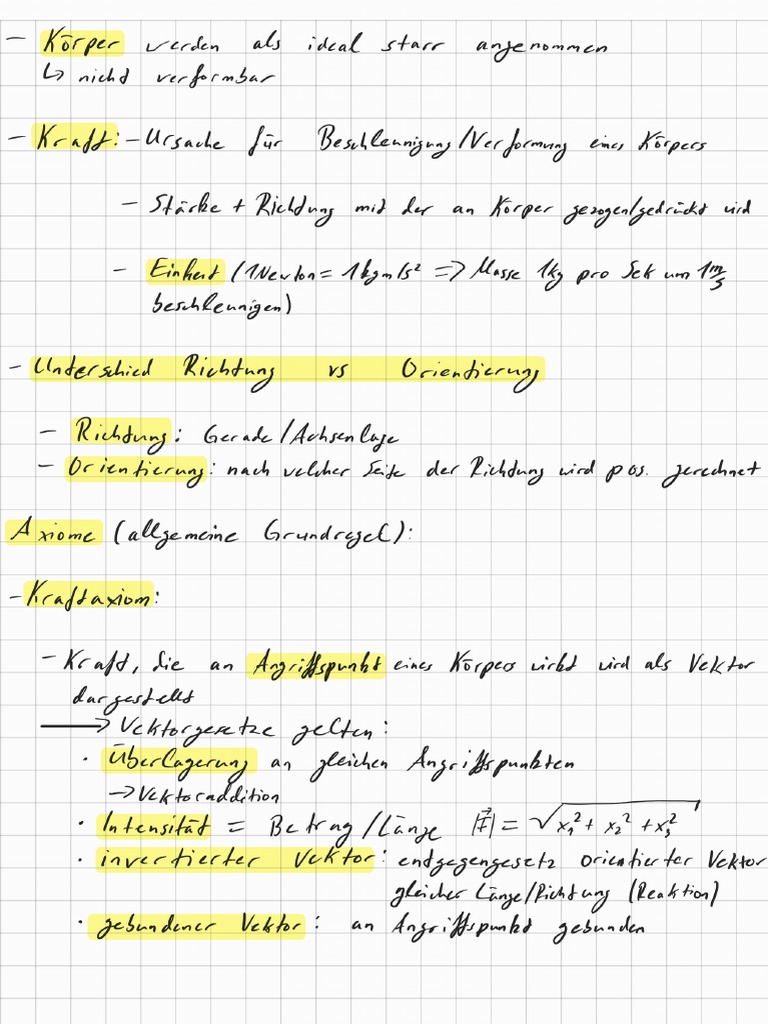 - Körper werden als ideal starr angenommen
↳ nicht verformbar
- Kraft: - Ursache für Beschleunigung/Verformung eines Körpers
- Stärke + Richtung mit der an Körper gezogen/gedrückt wird
- Einheit (1Newton = 1kgm/s² => Masse 1kg pro Sek um 1m/s
beschleunigen)
- Unterschied Richtung vs Orientierung
- Richtung: Gerade/Achsenlage
- Orientierung: nach welcher Seite der Richtung wird pos. gerechnet
Axiome (allgemeine Grundregel):
- Kraftaxiom:
- Kraft, die an Angriffspunkt eines Körpers wirkt wird als Vektor
dargestellt
→ Vektorgesetze gelten:
· Überlagerung an gleichen Angriffspunkten
→ Vektoraddition
· Intensität = Betrag/Länge |x⃗| = √x₁² + x₂² + x₃²
· invertierter Vektor: endgegengesetz orientierter Vektor
gleicher Länge/Richtung (Reaktion)
· gebundener Vektor: an Angriffspunkt gebunden